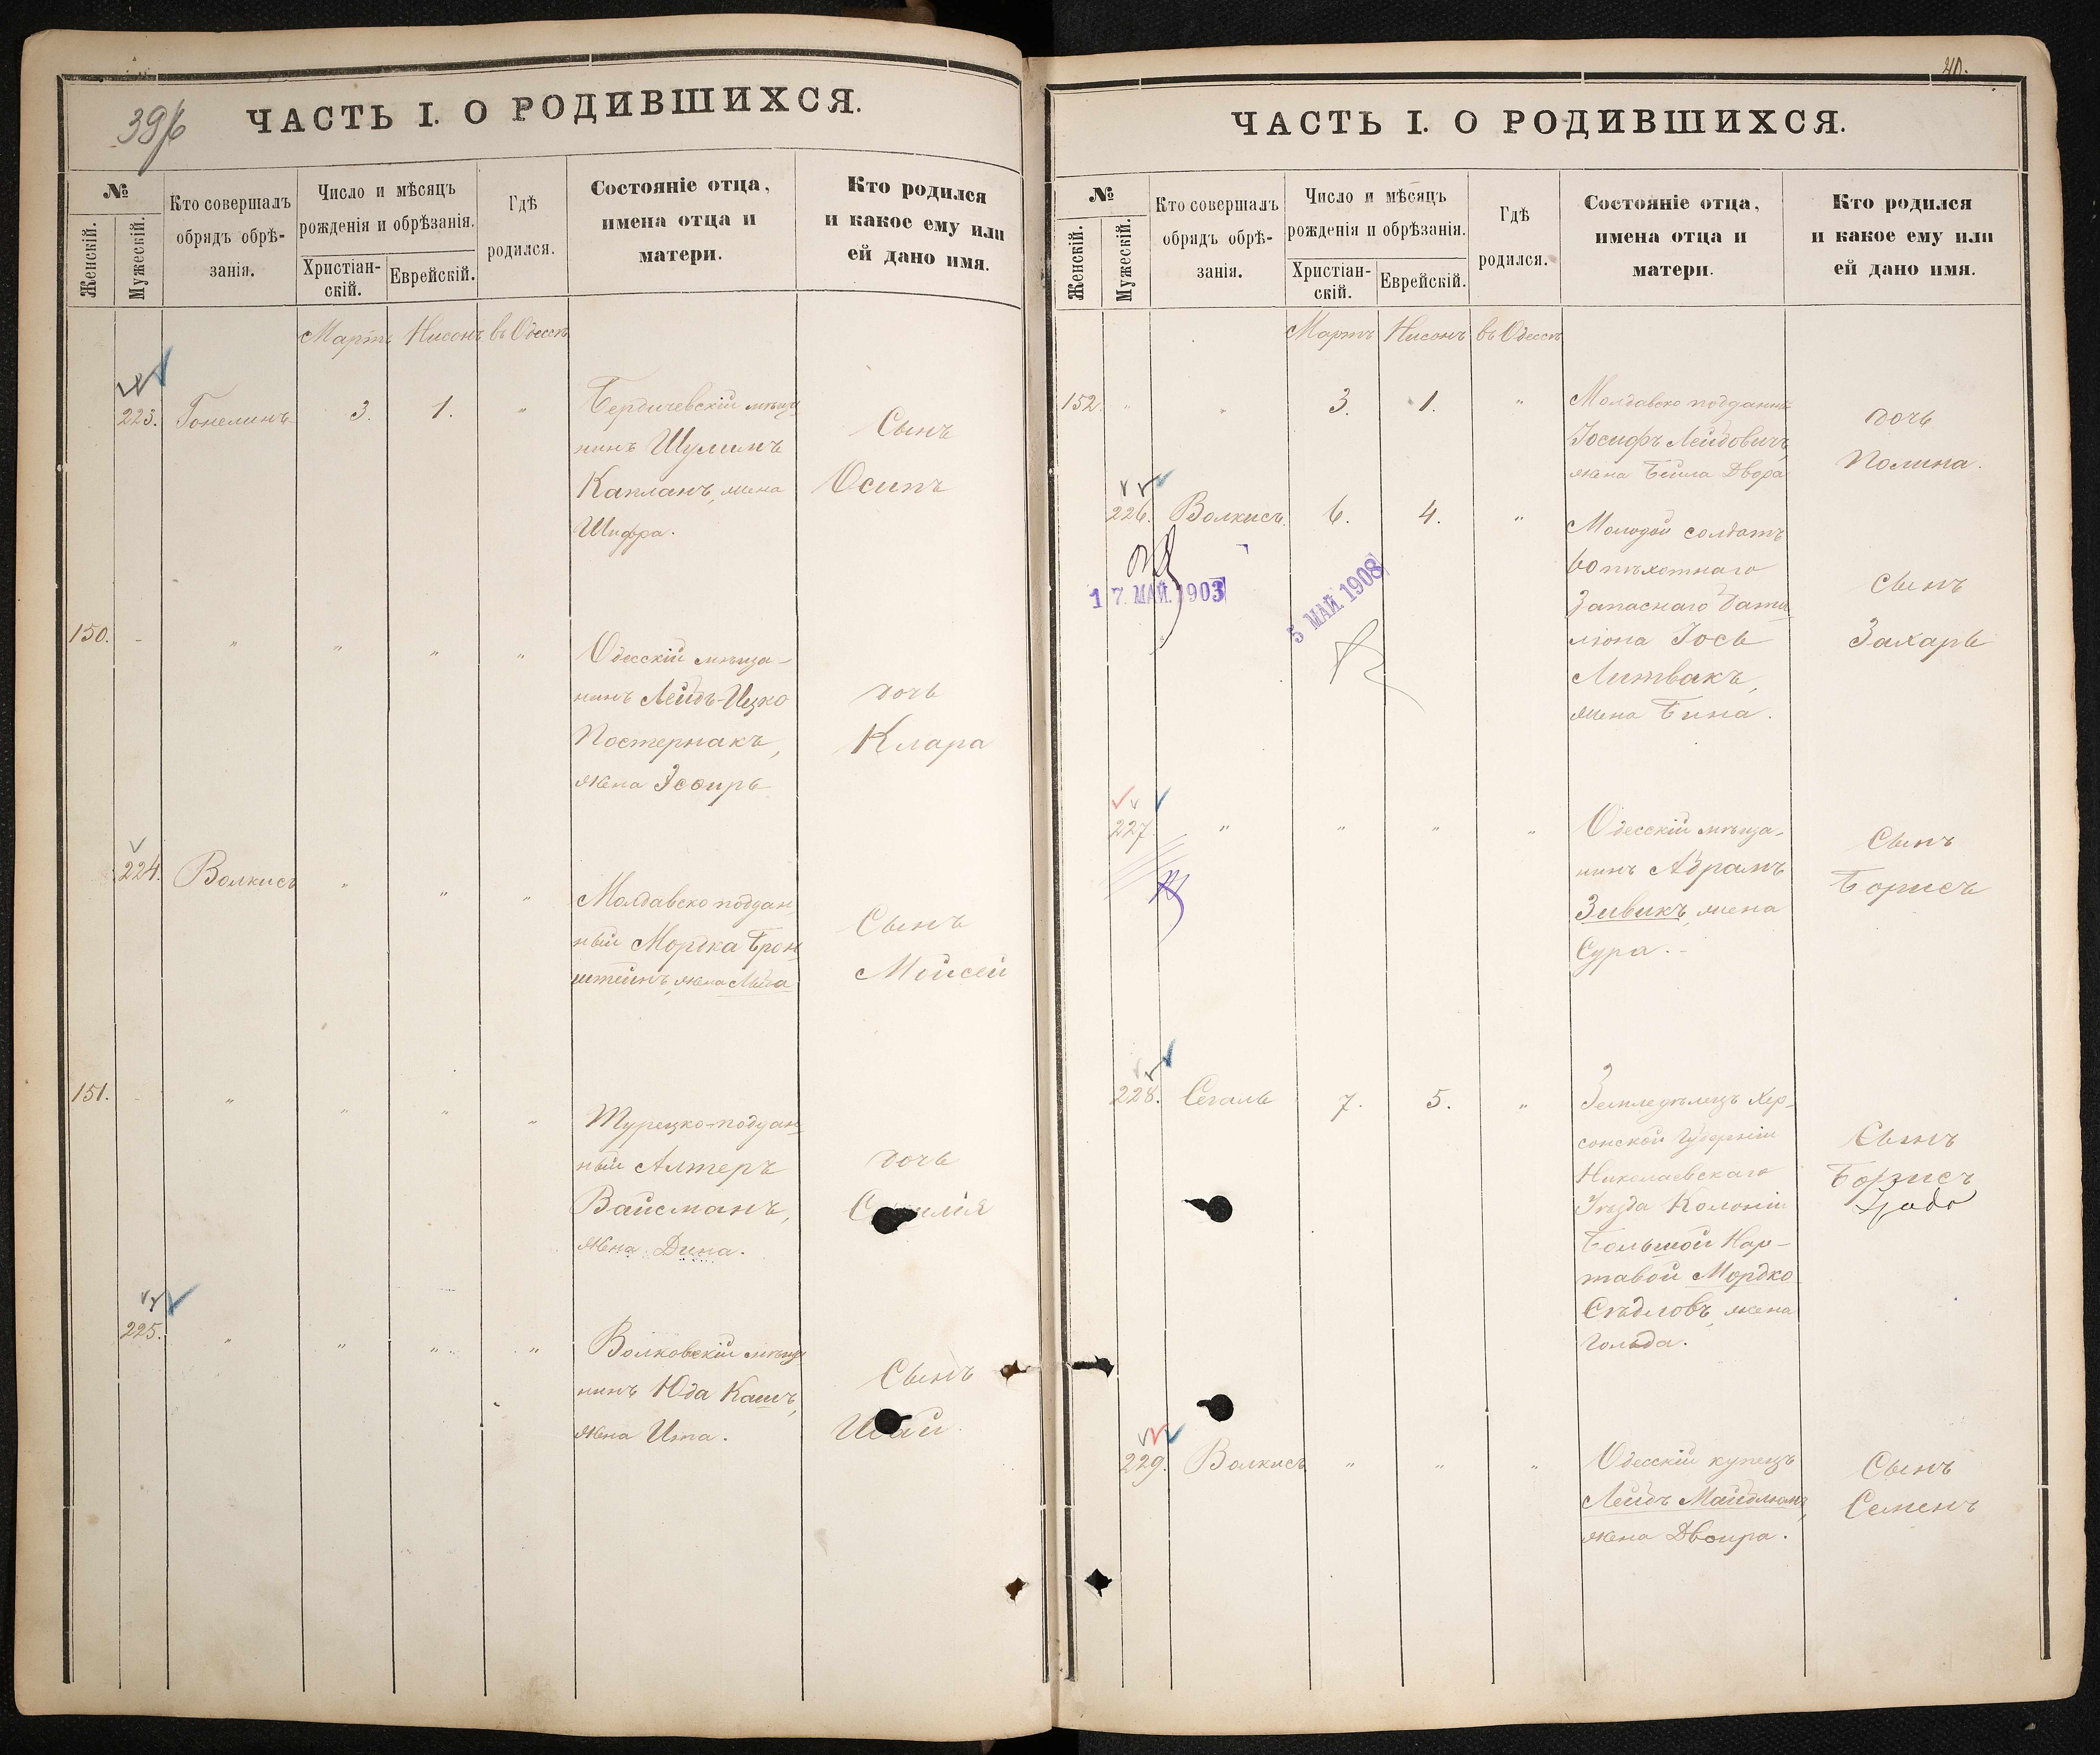 39/б
ЧАСТЬ I. О РОДИВШИХСЯ.
№
Женскій.
Мужескій.
Кто совершалъ
обрядъ обрѣ-
занія.
Число и мѣсяцъ
рожденія и обрѣзанія.
Христіан-
скій.
Еврейскій.
Гдѣ
родился.
Состояніе отца,
имена отца и
матери.
Кто родился
и какое ему или
ей дано имя.
Мартъ Нисонъ въ Одессѣ
223. Гонелинъ 3. 1. "
Бердичевскій мѣща
нинъ Шулимъ
Капланъ, жена
Шифра.
Сынъ
Осипъ
150. - " " " "
Одесскій мѣща-
нинъ Лейдъ-Ицко
Постернакъ,
жена Эсѳирь
дочь
Клара
224. Волкисъ " " "
Молдавско поддан
ный Мордка Брон
штейнъ, жена
Сынъ
Мойсей
151. - " " " "
Турецко-поддан
ный Алтеръ
Вайсманъ,
жена Дина.
дочь
225. " " " "
Волковскій мѣща
нинъ Юда Кашъ,
жена Ита.
Сынъ
40.
ЧАСТЬ I. О РОДИВШИХСЯ.
№
Женскій.
Мужескій.
Кто совершалъ
обрядъ обрѣ-
занія.
Число и мѣсяцъ
рожденія и обрѣзанія.
Христіан-
скій.
Еврейскій.
Гдѣ
родился.
Состояніе отца,
имена отца и
матери.
Кто родился
и какое ему или
ей дано имя.
Мартъ Нисонъ въ Одессѣ
152. " " 3. 1. "
Молдавско подданный
Іосифъ Лейдовичъ,
жена Бейла Двора
дочь
Полина.
226. Волкисъ 6. 4. "
Молодой солдатъ
60 пѣхотнаго
Запаснаго Бата
ліона Іось
Литвакъ,
жена Бина.
сынъ
Захарь
17. МАЙ. 1903
5 МАЙ. 1908
227. " " " "
Одесскій мѣща-
нинъ Абрамъ
Зивикъ, жена
Сура.
Сынъ
Борисъ
228. Сегаль 7. 5. "
Земледѣлецъ Хер-
сонской Губерніи
Николаевскаго
Уѣзда Колоніи
Большой Нар-
тавой Мордко
Сѣдловъ, жена
Гольда.
Сынъ
Борисъ
229. Волкисъ " " "
Одесскій купецъ
Лейдъ
жена Двоира.
Сынъ
Семенъ